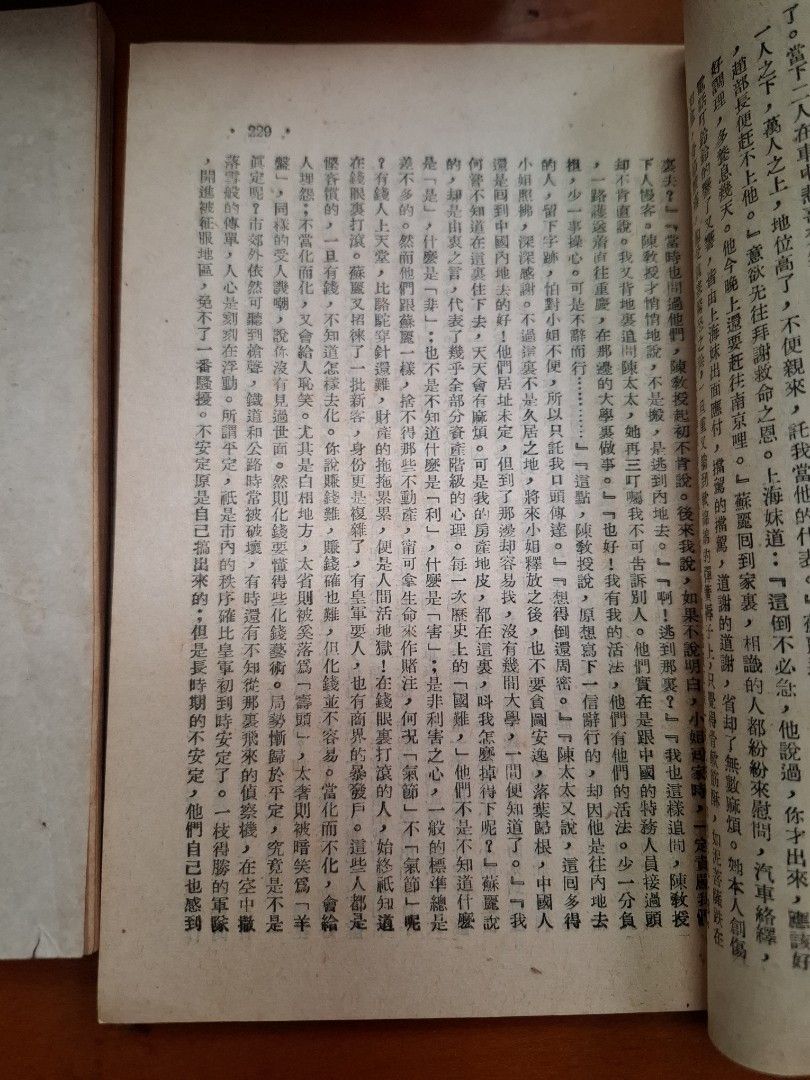 了。當下二人在車中
一人之下，萬人之上，地位高了，不便親來，託我當他的代表。
，趙部長便赶不上他。』意欲先往拜謝救命之恩。上海妹道：『這倒不必急，他說過，你才出來，應該好
好調理，多養息幾天。他今晚上還要赶往南京哩。』蘇麗回到家裏，相識的人都紛紛來慰問，汽車絡繹，
電話打鈴鈴的響了又響，省由上海妹出面應付，擋駕的擋駕，道謝的道謝，省却了無數麻煩。她本人創傷
裏去？』『當時也問過他們，陳敎授起初不肯說。後來我說，如果不說明白，小姐回家時，一定責
下人慢客。陳敎授才悄悄地說，不是搬，是逃到內地去。』『啊！逃到那裏？』『我也這樣追問，陳敎授
却不肯直說。我又背地裏追問陳太太，她再三叮囑我不可告訴別人。他們實在是跟中國的特務人員接過頭
，一路護送着直往重慶，在那邊的大學裏做事。』『也好！我有我的活法，他們有他們的活法。少一分負
担，少一事操心。可是不辭而行…………』『這點，陳敎授說，原想寫下一信辭行的，却因他是往內地去
的人，留下字跡，怕對小姐不便，所以只託我口頭傳達。』『想得倒還周密。』『陳太太又說，這回多得
小姐照拂，深深感謝。不過這裏不是久居之地，將來小姐釋放之後，也不要貪圖安逸，落葉歸根，中國人
還是回到中國內地去的好！他們居址未定，但到了那邊却容易找，沒有幾間大學，一問便知道了。』『我
何嘗不知道在這裏住下去，天天會有麻煩。可是我的房產地皮，都在這裏，呌我怎麼掉得下呢？』蘇麗說
的，却是由衷之言，代表了幾乎全部分資產階級的心理。每一次歷史上的「國難」，他們不是不知道什麼
是「是」，什麼是「非」；也不是不知道什麼是「利」，什麼是「害」；是非利害之心，一般的標準總是
差不多的。然而他們跟蘇麗一樣，捨不得那些不動產，甯可拿生命來作賭注，何况「氣節」不「氣節」呢
？有錢人上天堂，比駱駝穿針還難，財產的拖拖累累，便是人間活地獄！在錢眼裏打滾的人，始終祇知道
在錢眼裏打滾。蘇麗又招徠了一批新客，身份更是複雜了，有皇軍要人，也有商界的暴發戶。這些人都是
慳吝慣的，一旦有錢，不知道怎樣去化。你說賺錢難，賺錢確也難，但化錢並不容易。當化而不化，會給
人埋怨；不當化而化，又會給人恥笑。尤其是白相地方，太省則被奚落爲「壽頭」，太奢則被暗笑爲「羊
盤」，同樣的受人譏嘲，說你沒有見過世面。然則化錢要懂得些化錢藝術。局勢慚歸於平定，究竟是不是
眞定呢？市郊外依然可聽到槍聲，鐵道和公路時常被破壞，有時還有不知從那裏飛來的偵察機，在空中撒
落雪般的傳單，人心是刻刻在浮動。所謂平定，祇是市內的秩序確比皇軍初到時安定了。一枝得勝的軍隊
，開進被征服地區，免不了一番騷擾。不安定原是自己搞出來的；但是長時期的不安定，他們自己也感到
• 229 •